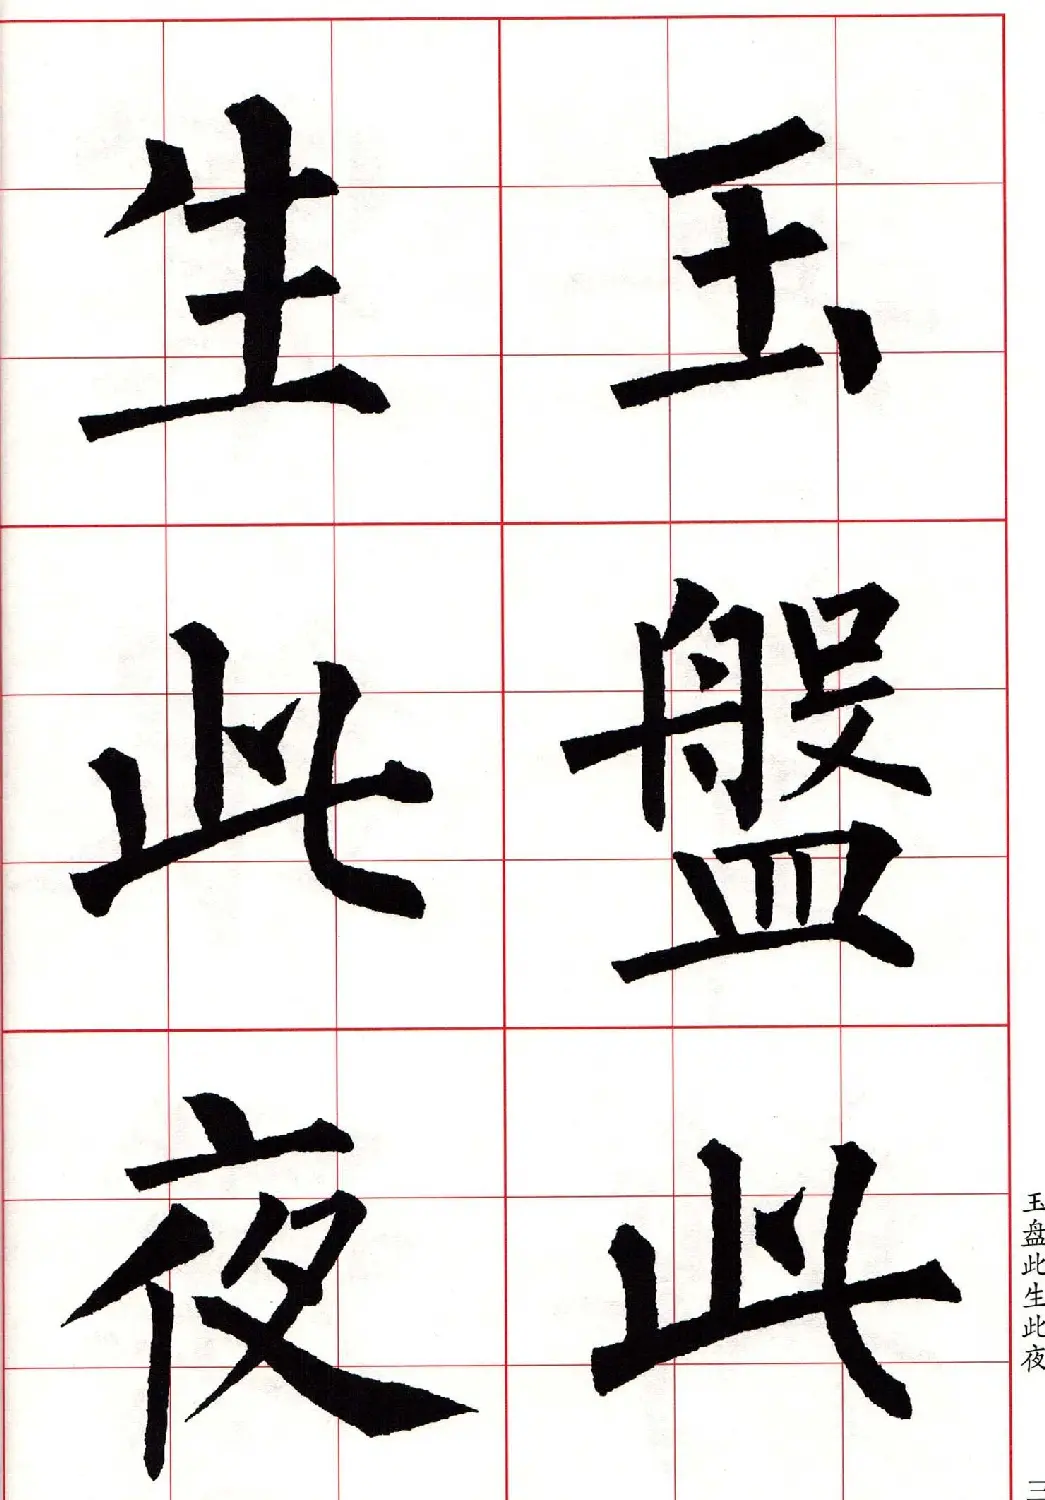 玉盤此
生此夜
玉盘此生此夜
三